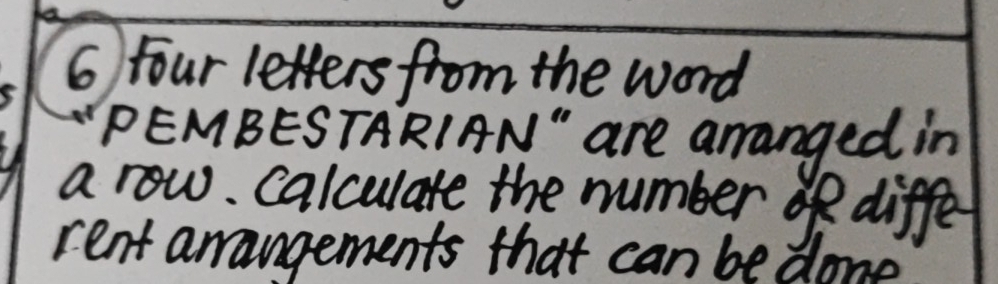 6 Four letters from the word
"PEMBESTARIAN" are arranged in
a row. Calculate the number of diffe-
rent arrangements that can be done